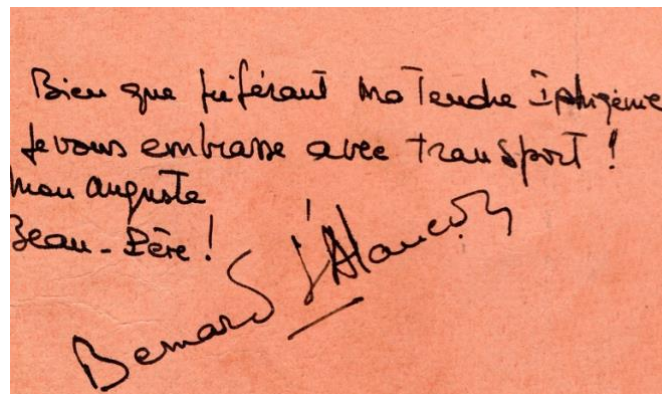 Bien que préférant ma Tendre Iphigénie
Je vous embrasse avec transport !
mon auguste
Beau-Père !
Bernard d'Alançon